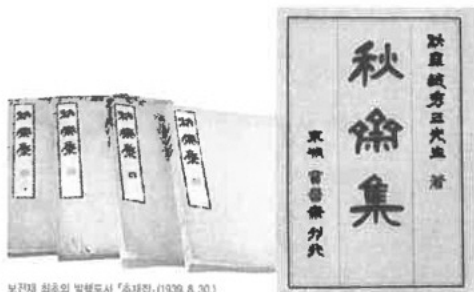 秋齋集
秋齋集
秋齋集
秋齋集
秋齋趙秀三先生 著
秋齋集
京城 寶晉齋 刊行
보진재 최초의 발행도서 『추재집』(1939. 8. 30.)